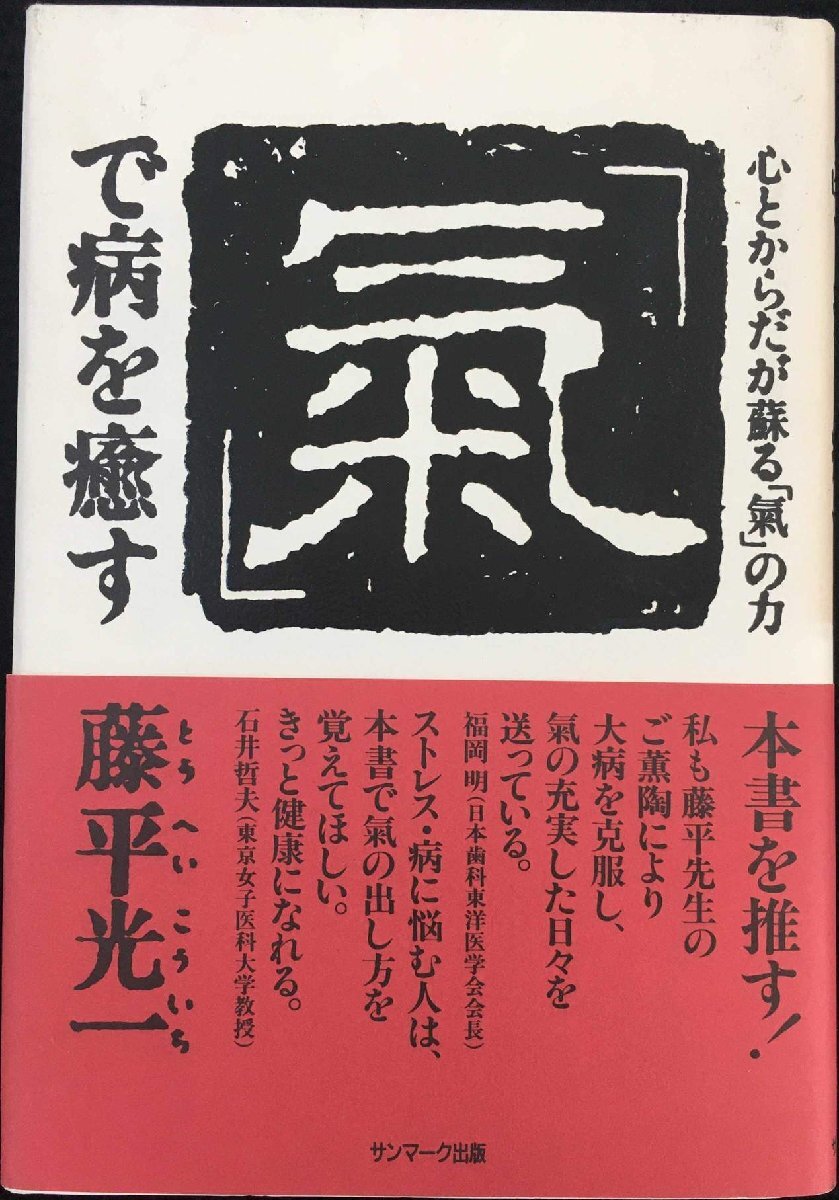 心とからだが蘇る「氣」の力
「氣」
で病を癒す
本書を推す!
私も藤平先生の
ご薫陶により
大病を克服し、
氣の充実した日々を
送っている。
福岡 明(日本歯科東洋医学会会長)
ストレス・病に悩む人は、
本書で氣の出し方を
覚えてほしい。
きっと健康になれる。
石井哲夫(東京女子医科大学教授)
藤平光一
とうへいこういち
サンマーク出版